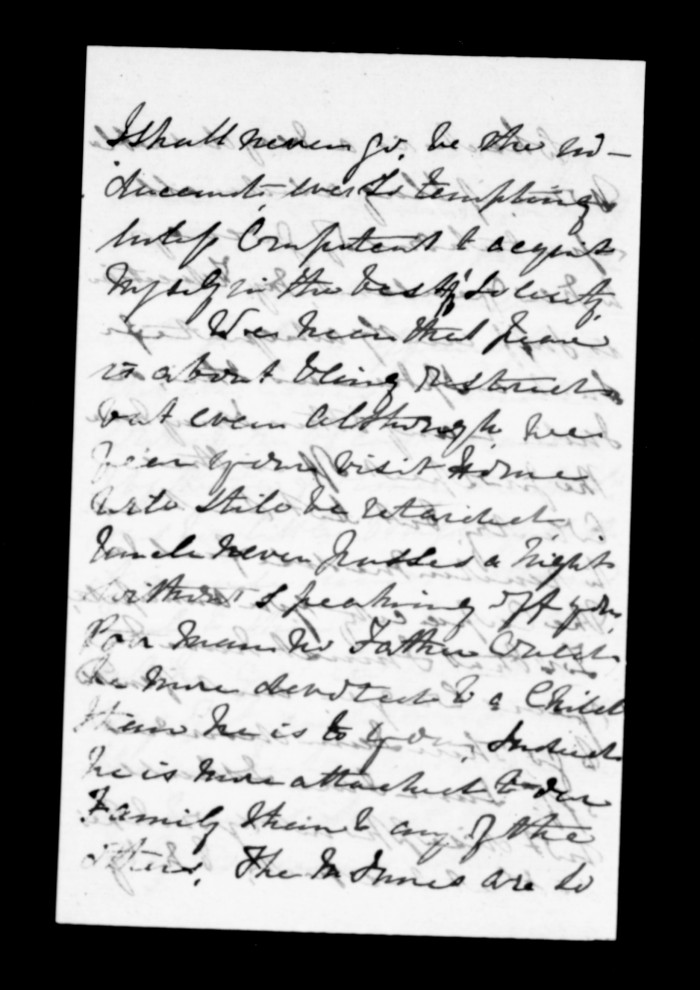 I shall never go, be the in-
ducement ever so tempting
until competent to acquit
Myself in the best of Society
We hear that peace
is about being restored
but even although we
fear your visit home
will still be retarded
Uncle never passes a night
without speaking off you
Poor man no Father could
be more devoted to a Child
than he is to you, Indeed
he is more attached to our
Family than to any of the
others. The McInnes are so